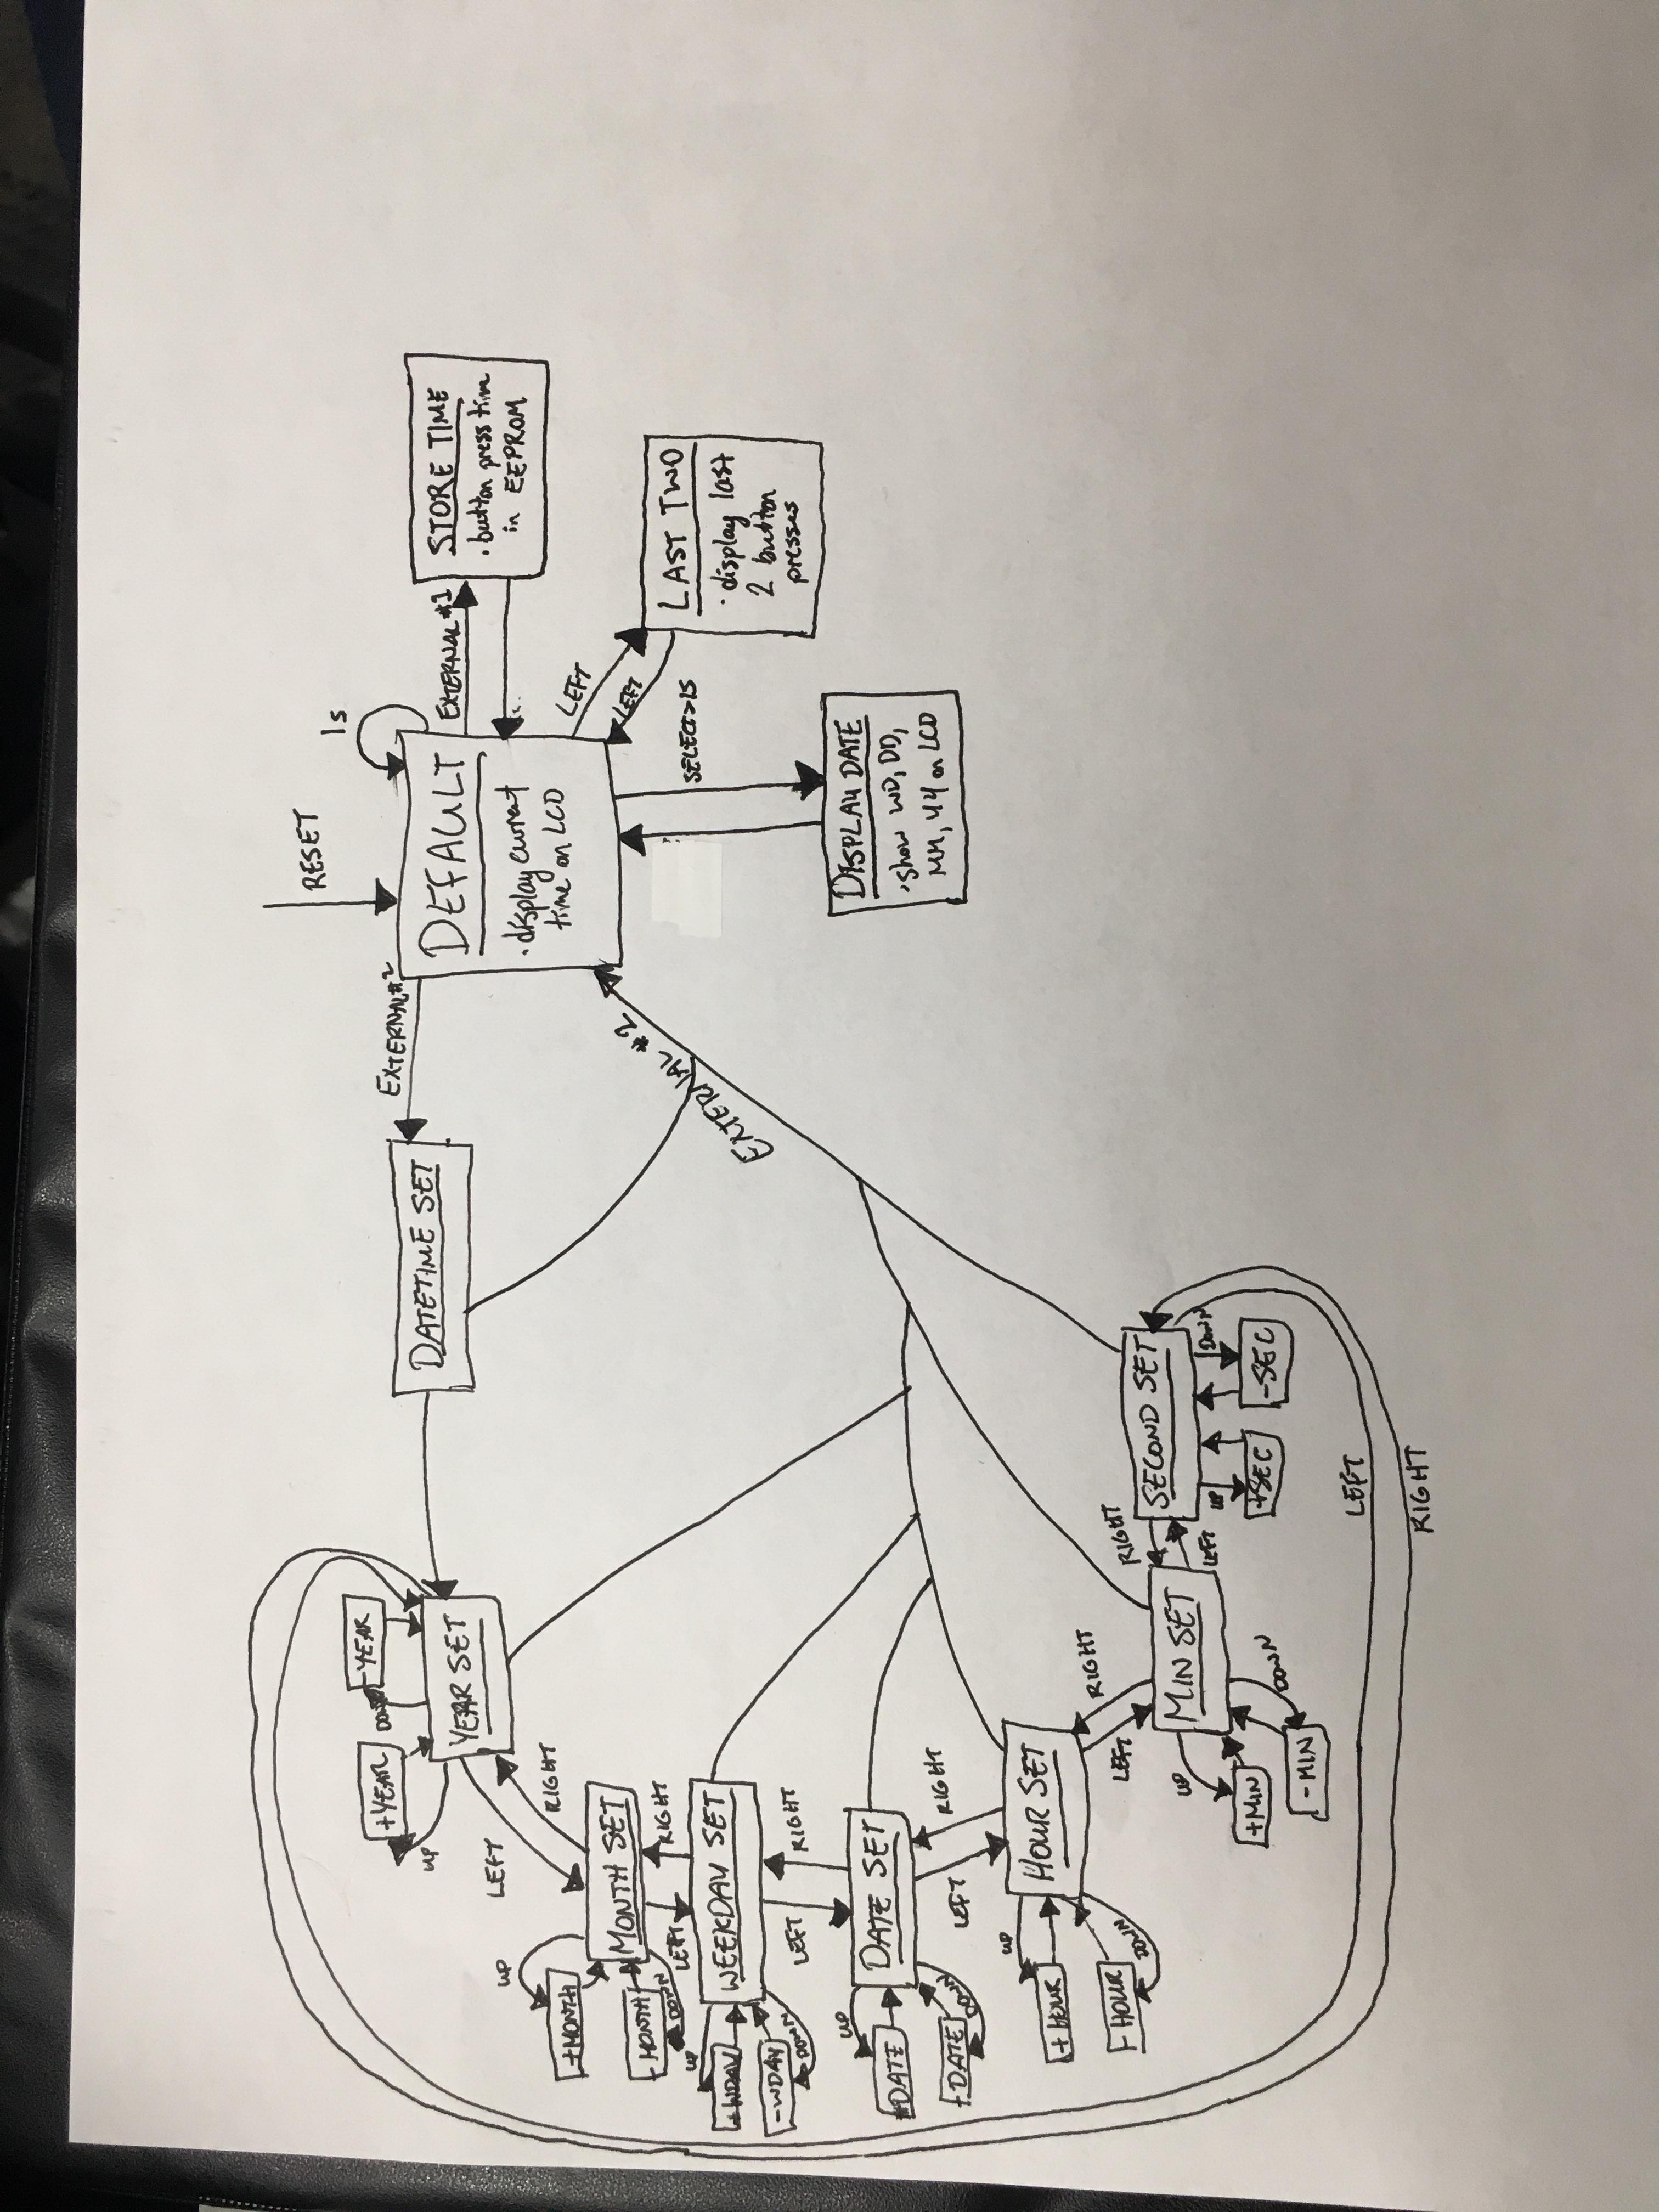 RESET
1s
DEFAULT
·display current
time on LCD
EXTERNAL #1
STORE TIME
·button press time
in EEPROM
LEFT
LEFT
LAST TWO
·display last
2 button
presses
SELECT>1S
DISPLAY DATE
·show WD, DD,
MM, YY on LCD
EXTERNAL #2
DATETIME SET
EXTERNAL #2
YEAR SET
+YEAR
UP
-YEAR
DOWN
LEFT
RIGHT
MONTH SET
UP
+MONTH
-MONTH
DOWN
LEFT
RIGHT
WEEKDAY SET
UP
+WDAY
-WDAY
DOWN
LEFT
RIGHT
DATE SET
UP
DATE
DATE
DOWN
LEFT
RIGHT
HOUR SET
UP
+HOUR
-HOUR
DOWN
LEFT
RIGHT
MIN SET
UP
+MIN
-MIN
DOWN
RIGHT
LEFT
SECOND SET
UP
+SEC
DOWN
-SEC
LEFT
RIGHT